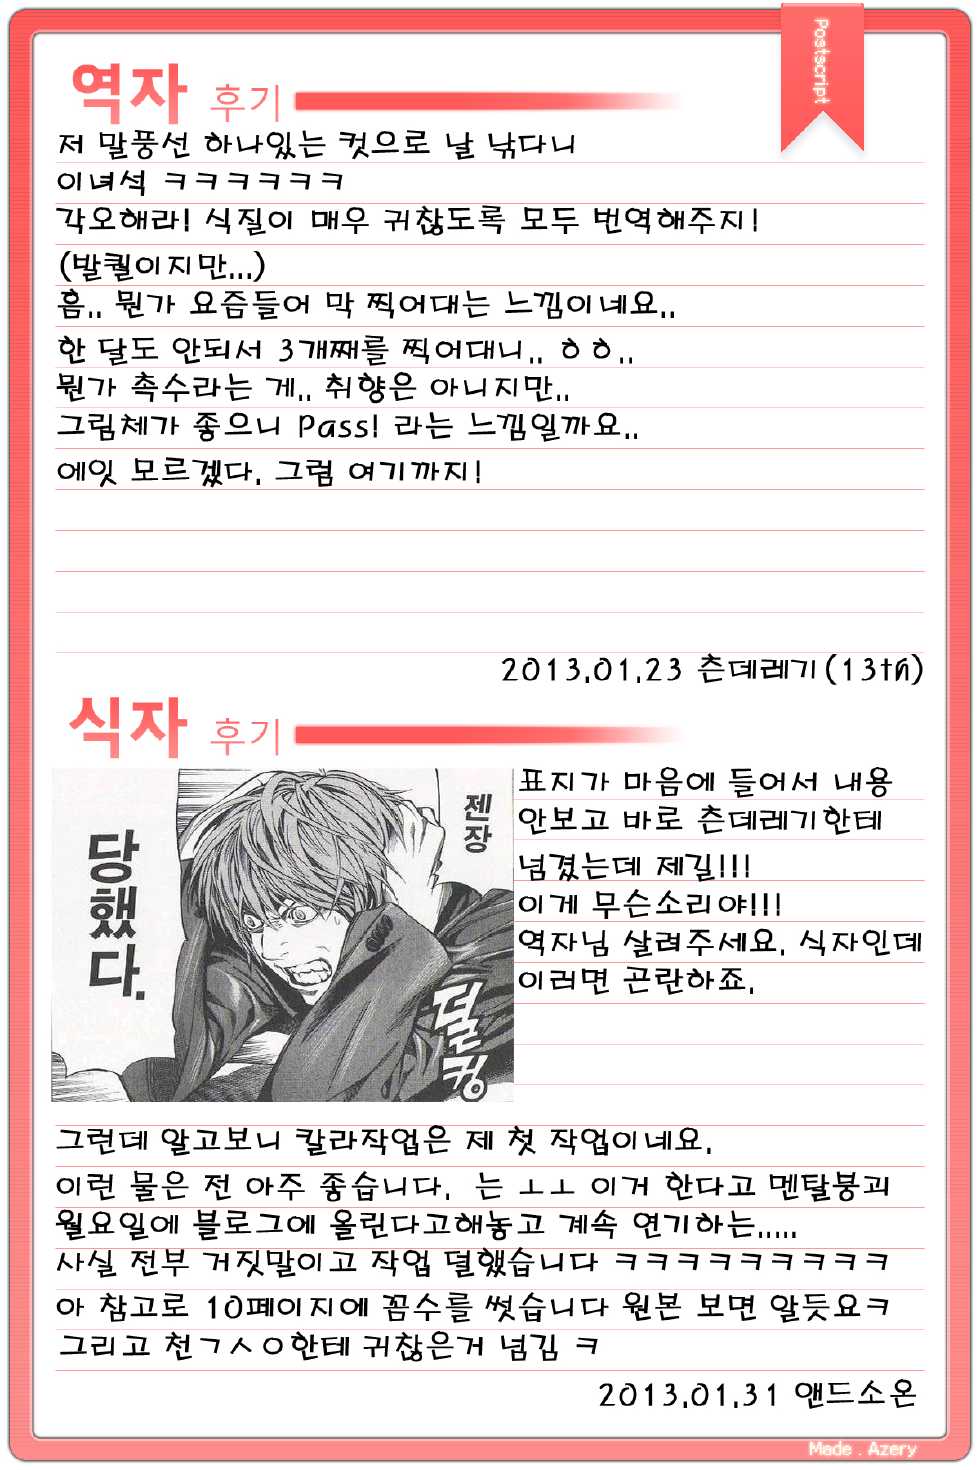 Postscript
역자 후기
저 말풍선 하나있는 컷으로 날 낚다니
이녀석 ㅋㅋㅋㅋㅋㅋ
각오해라! 식질이 매우 귀찮도록 모두 번역해주지!
(발퀄이지만...)
흠.. 뭔가 요즘들어 막 찍어대는 느낌이네요..
한 달도 안되서 3개째를 찍어대니.. ㅎㅎ..
뭔가 촉수라는 게.. 취향은 아니지만..
그림체가 좋으니 Pass! 라는 느낌일까요..
에잇 모르겠다. 그럼 여기까지!
2013.01.23 츤데레기(13th)
식자 후기
젠장
당했다.
덜컹
표지가 마음에 들어서 내용
안보고 바로 츤데레기한테
넘겼는데 제길!!!
이게 무슨소리야!!!
역자님 살려주세요. 식자인데
이러면 곤란하죠.
그런데 알고보니 칼라작업은 제 첫 작업이네요.
이런 물은 전 아주 좋습니다. 는 ㅗㅗ 이거 한다고 멘탈붕괴
월요일에 블로그에 올린다고해놓고 계속 연기하는.....
사실 전부 거짓말이고 작업 덜했습니다 ㅋㅋㅋㅋㅋㅋㅋㅋㅋ
아 참고로 10페이지에 꼼수를 썻습니다 원본 보면 알듯요ㅋ
그리고 천ㄱㅅㅇ한테 귀찮은거 넘김 ㅋ
2013.01.31 앤드소온
Made . Azery